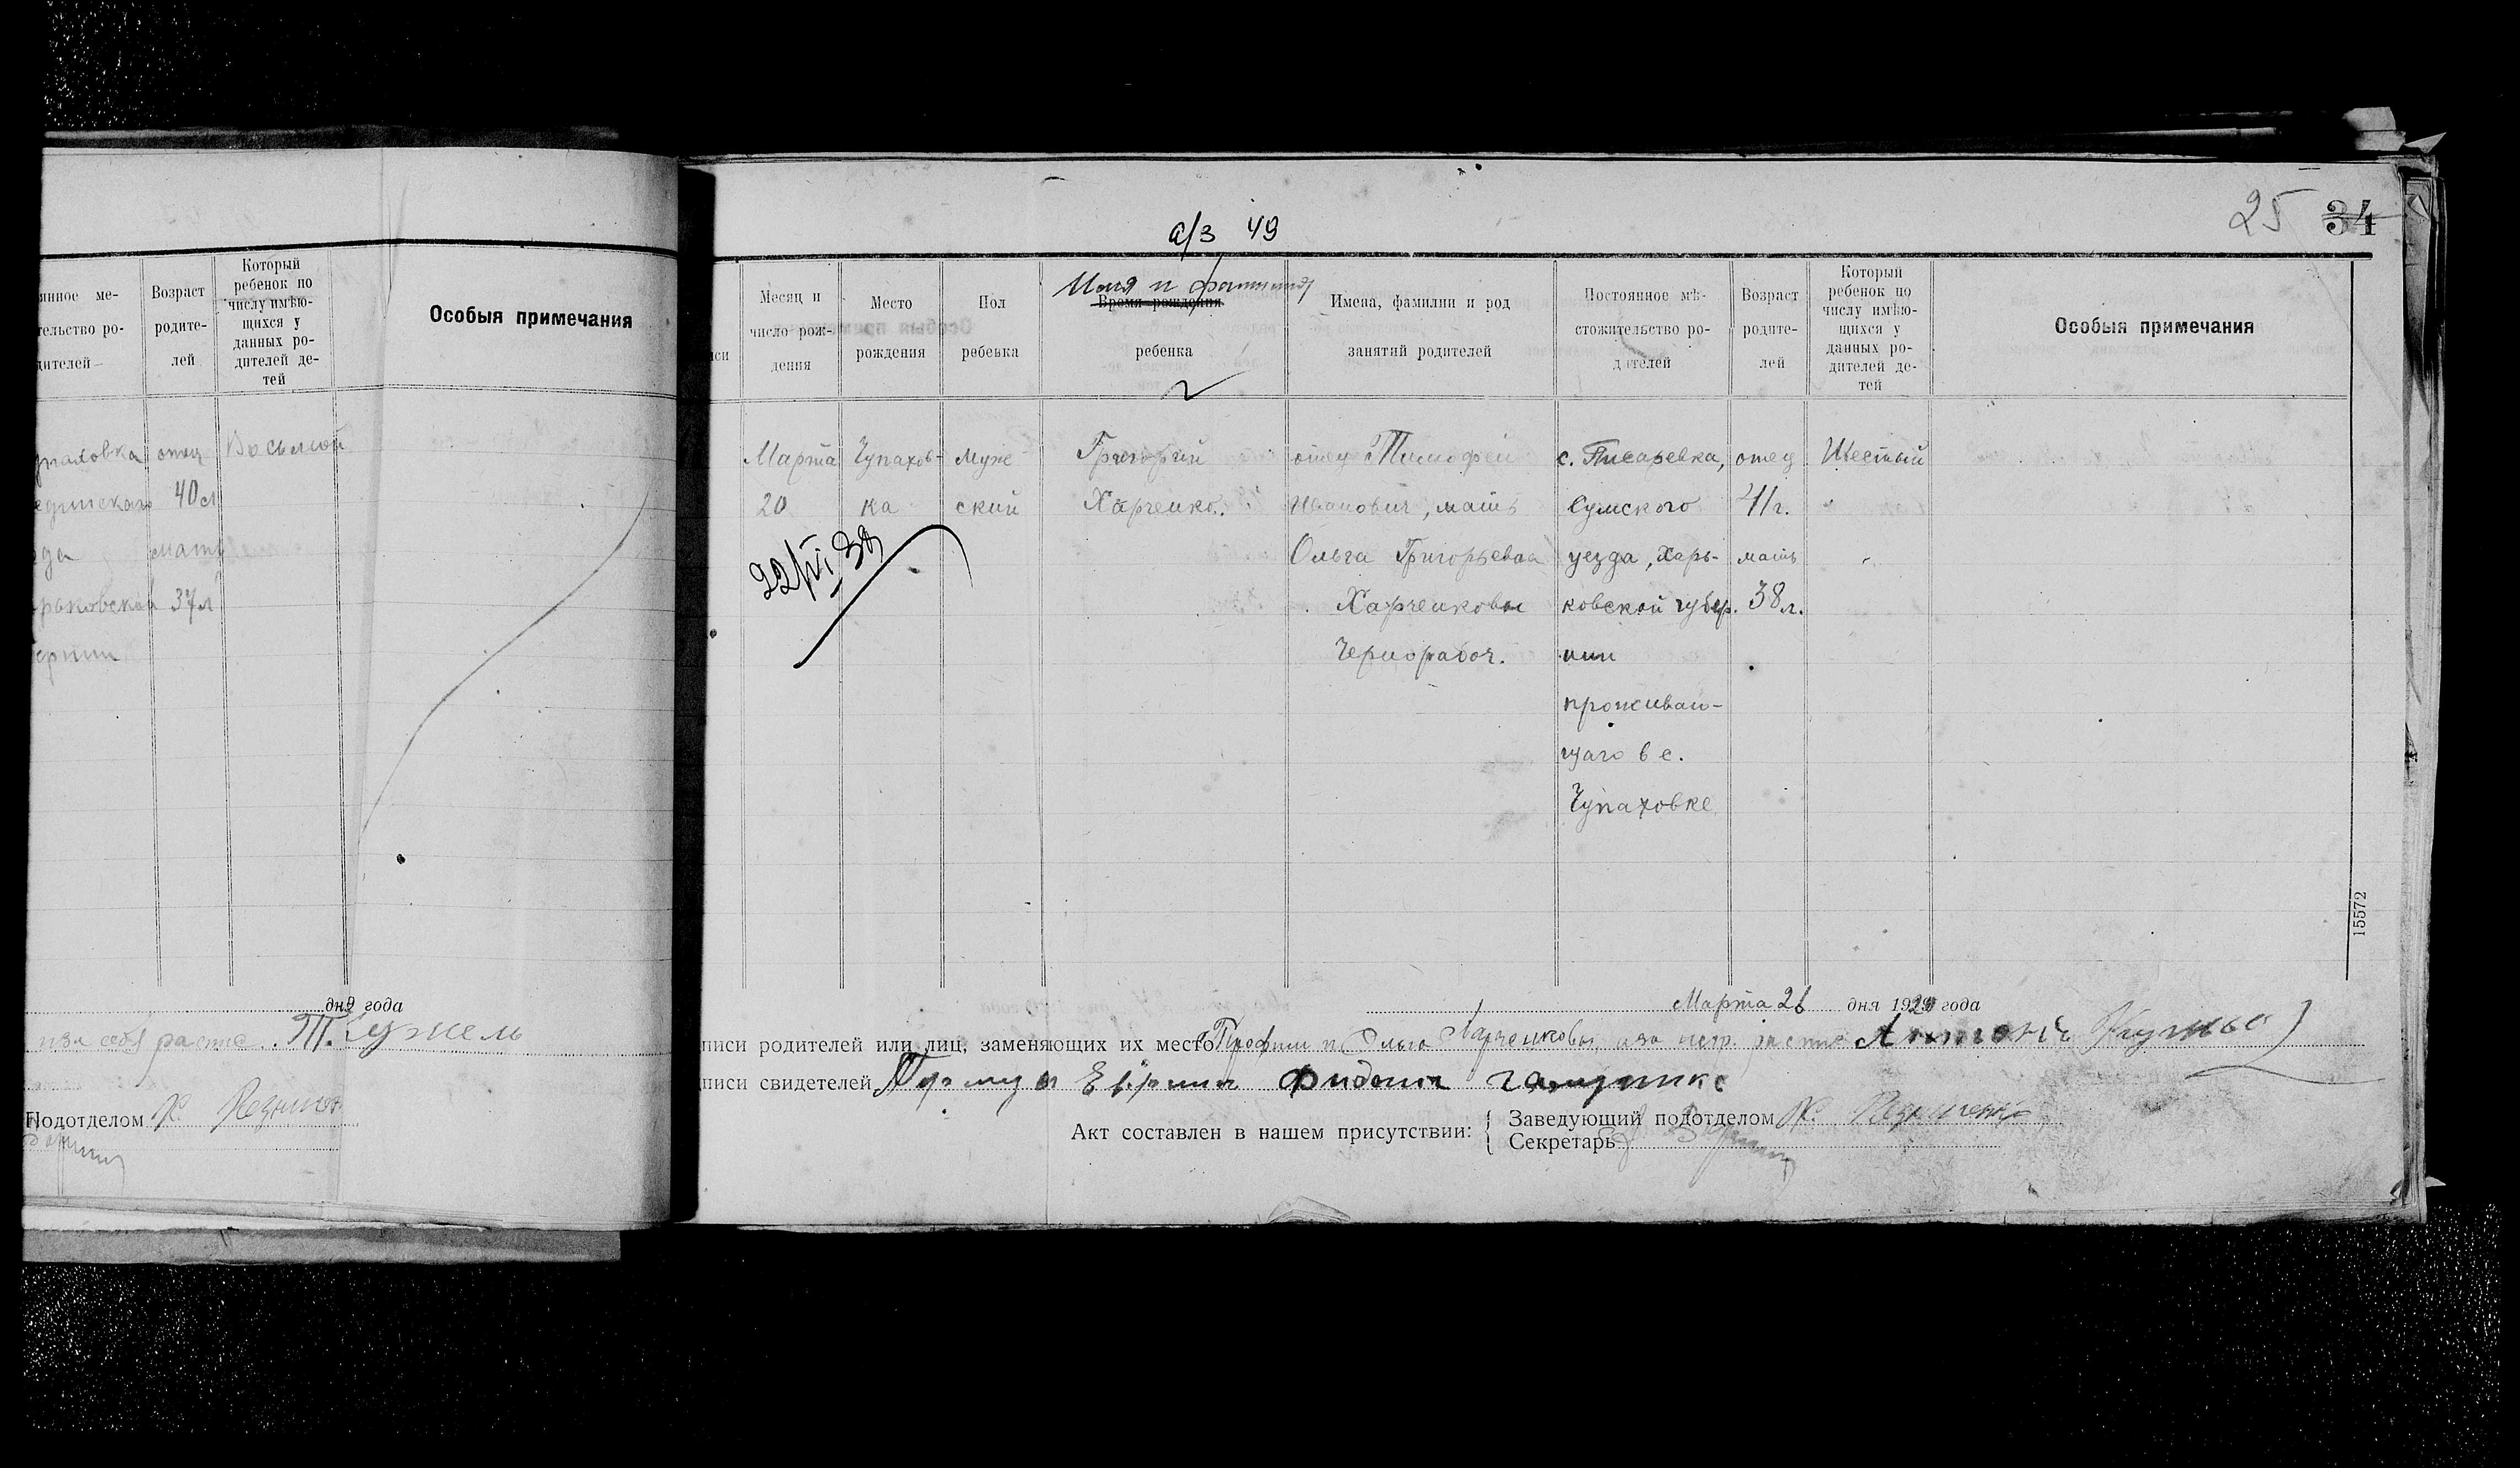 янное ме-
тельство ро-
дителей
Возраст
родите-
лей
Который
ребенок по
числу имѣю-
щихся у
данных ро-
дителей де-
тей
Особыя примечания
отец
40 л
мать
37 л
Восьмой
дня года
Т. Кужель
Подотделом
а/з 49
25 34
иси
Месяц и
число рож-
дения
Место
рождения
Пол
ребенка
Имя и фамилия
Время рождения
ребенка
Имена, фамилии и род
занятий родителей
Постоянное мѣ-
стожительство ро-
дителей
Возраст
родите-
лей
Который
ребенок по
числу имѣю-
щихся у
данных ро-
дителей де-
тей
Особыя примечания
Марта
20
22/VI 39
Чупахов-
ка
Муж
ский
Григорий
Харченко.
отец Тимофей
Иванович, мать
Ольга Григорьевна
Харченковы
Чернорабоч.
с. Писаревка,
Сумского
уезда, Харь-
ковской губер.
нии
проживаю-
щаго в с.
Чупаховке
отец
41 г.
мать
38 л.
Шестый
15572
Марта 26 дня 1920 года
писи родителей или лиц, заменяющих их место Ольга Харченковы, а за негр.
писи свидетелей
Акт составлен в нашем присутствии:
Заведующий подотделом
Секретарь